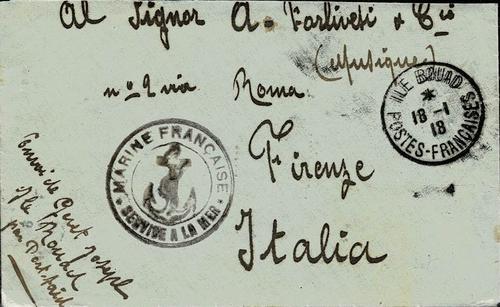 Al Signor A. Forliveti & Cie
(Musique)
n° 2 via Roma
Firenze
Italia
ILE ROUAD
*
18 -1
18
POSTES-FRANÇAISES
MARINE FRANÇAISE
• SERVICE A LA MER •
Envoi de Geit Joseph
Ile Rouad
par Port Saïd